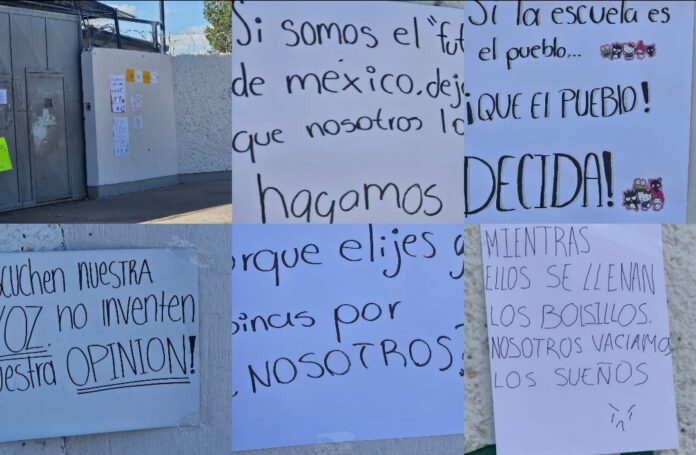 Si somos el "fut
de méxico. dej
que nosotros lo
hagamos
Si la escuela es
el pueblo...
¡QUE El PUEBLO!
DECIDA!
cuchen nuestra
VOZ, no inventen
uestra OPINION!
orque elijes y
pinas por
NOSOTROS?
MIENTRAS
ELLOS SE LLENAN
LOS BOLSILLOS.
NOSOTROS VACIAMOS
LOS SUEÑOS